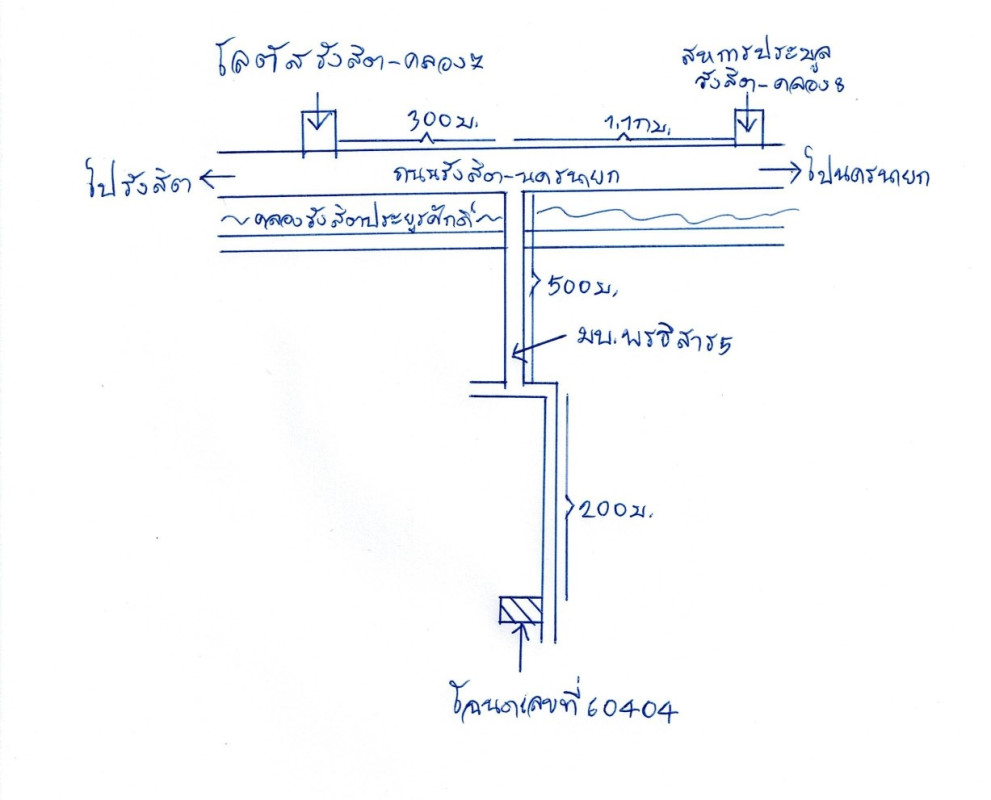 โลตัสรังสิต-คลอง7
สหการประมูล
รังสิต-คลอง8
300ม.
1.1กม.
ไปรังสิต
ถนนรังสิต-นครนายก
ไปนครนายก
คลองรังสิตประยูรศักดิ์
500ม.
มบ.พรธิสาร5
200ม.
โฉนดเลขที่ 60404